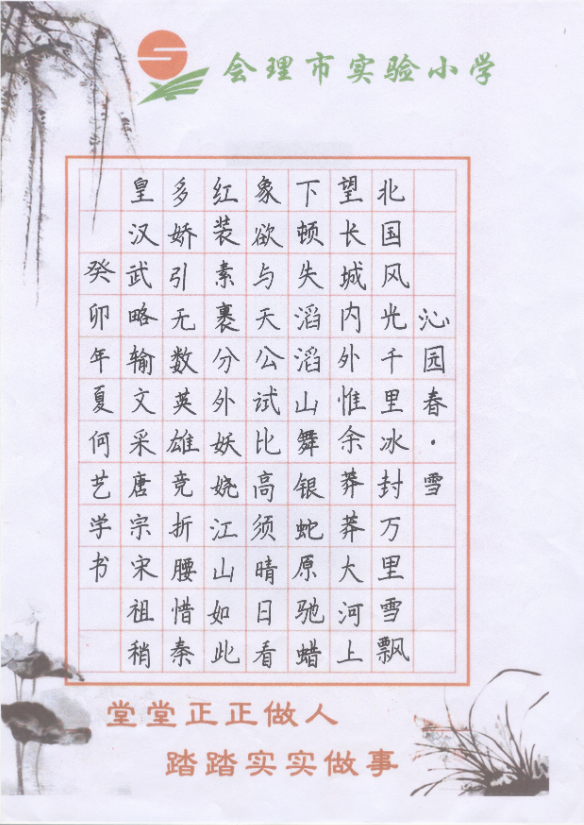 会理市实验小学
沁园春·雪
北国风光千里冰封万里雪飘
望长城内外惟余莽莽大河上
下顿失滔滔山舞银蛇原驰蜡
象欲与天公试比高须晴日看
红装素裹分外妖娆江山如此
多娇引无数英雄竞折腰惜秦
皇汉武略输文采唐宗宋祖稍
癸卯年夏何艺学书
堂堂正正做人
踏踏实实做事